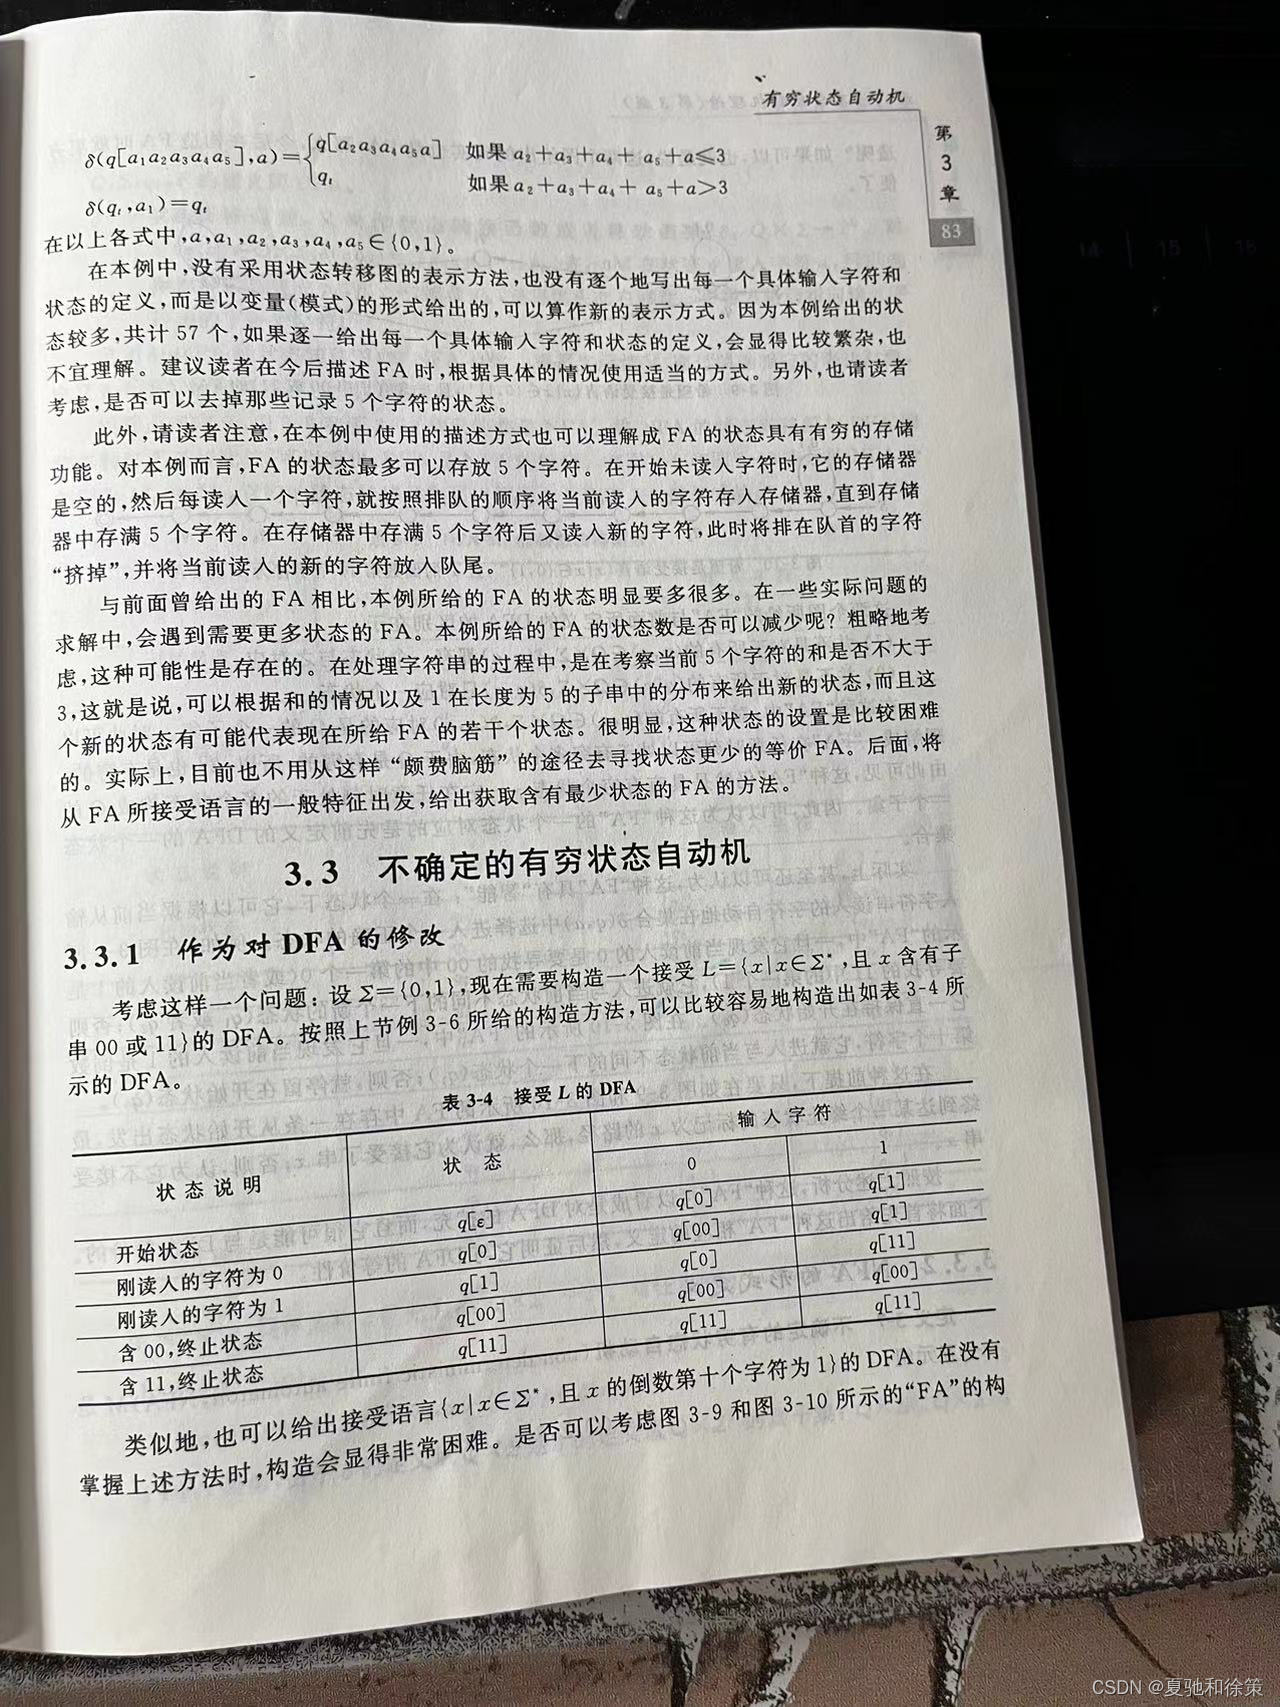 有穷状态自动机
第
3
章
83
δ(q[a₁a₂a₃a₄a₅],a)={q[a₂a₃a₄a₅a] 如果 a₂+a₃+a₄+a₅+a≤3
qₜ 如果 a₂+a₃+a₄+a₅+a>3
δ(qₜ,a₁)=qₜ
在以上各式中,a,a₁,a₂,a₃,a₄,a₅∈{0,1}。
在本例中,没有采用状态转移图的表示方法,也没有逐个地写出每一个具体输入字符和
状态的定义,而是以变量(模式)的形式给出的,可以算作新的表示方式。因为本例给出的状
态较多,共计 57 个,如果逐一给出每一个具体输入字符和状态的定义,会显得比较繁杂,也
不宜理解。建议读者在今后描述 FA 时,根据具体的情况使用适当的方式。另外,也请读者
考虑,是否可以去掉那些记录 5 个字符的状态。
此外,请读者注意,在本例中使用的描述方式也可以理解成 FA 的状态具有有穷的存储
功能。对本例而言,FA 的状态最多可以存放 5 个字符。在开始未读入字符时,它的存储器
是空的,然后每读入一个字符,就按照排队的顺序将当前读入的字符存入存储器,直到存储
器中存满 5 个字符。在存储器中存满 5 个字符后又读入新的字符,此时将排在队首的字符
“挤掉”,并将当前读入的新的字符放入队尾。
与前面曾给出的 FA 相比,本例所给的 FA 的状态明显要多很多。在一些实际问题的
求解中,会遇到需要更多状态的 FA。本例所给的 FA 的状态数是否可以减少呢?粗略地考
虑,这种可能性是存在的。在处理字符串的过程中,是在考察当前 5 个字符的和是否不大于
3,这就是说,可以根据和的情况以及 1 在长度为 5 的子串中的分布来给出新的状态,而且这
个新的状态有可能代表现在所给 FA 的若干个状态。很明显,这种状态的设置是比较困难
的。实际上,目前也不用从这样“颇费脑筋”的途径去寻找状态更少的等价 FA。后面,将
从 FA 所接受语言的一般特征出发,给出获取含有最少状态的 FA 的方法。
3.3 不确定的有穷状态自动机
3.3.1 作为对 DFA 的修改
考虑这样一个问题:设 Σ={0,1},现在需要构造一个接受 L={x|x∈Σ*,且 x 含有子
串 00 或 11}的 DFA。按照上节例 3-6 所给的构造方法,可以比较容易地构造出如表 3-4 所
示的 DFA。
表 3-4 接受 L 的 DFA
状态说明 状态 输入字符
0 1
开始状态 q[ε] q[0] q[1]
刚读入的字符为 0 q[0] q[00] q[1]
刚读入的字符为 1 q[1] q[0] q[11]
含 00,终止状态 q[00] q[00] q[00]
含 11,终止状态 q[11] q[11] q[11]
类似地,也可以给出接受语言{x|x∈Σ*,且 x 的倒数第十个字符为 1}的 DFA。在没有
掌握上述方法时,构造会显得非常困难。是否可以考虑图 3-9 和图 3-10 所示的“FA”的构
CSDN @夏驰和徐策